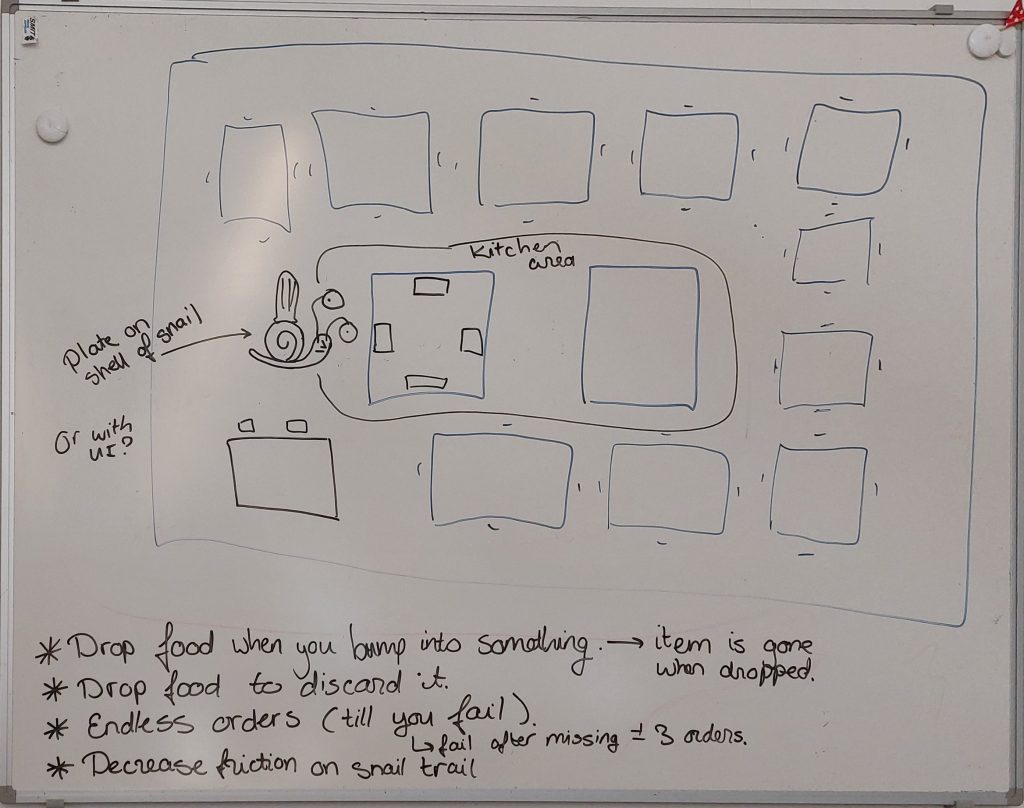 Kitchen
area
Plate on
shell of snail
Or with
UI?
* Drop food when you bump into somathing. → item is gone
when dropped.
* Drop food to discard it.
* Endless orders (till you fail).
↳ fail after missing ± 3 orders.
* Decrease friction on snail trail